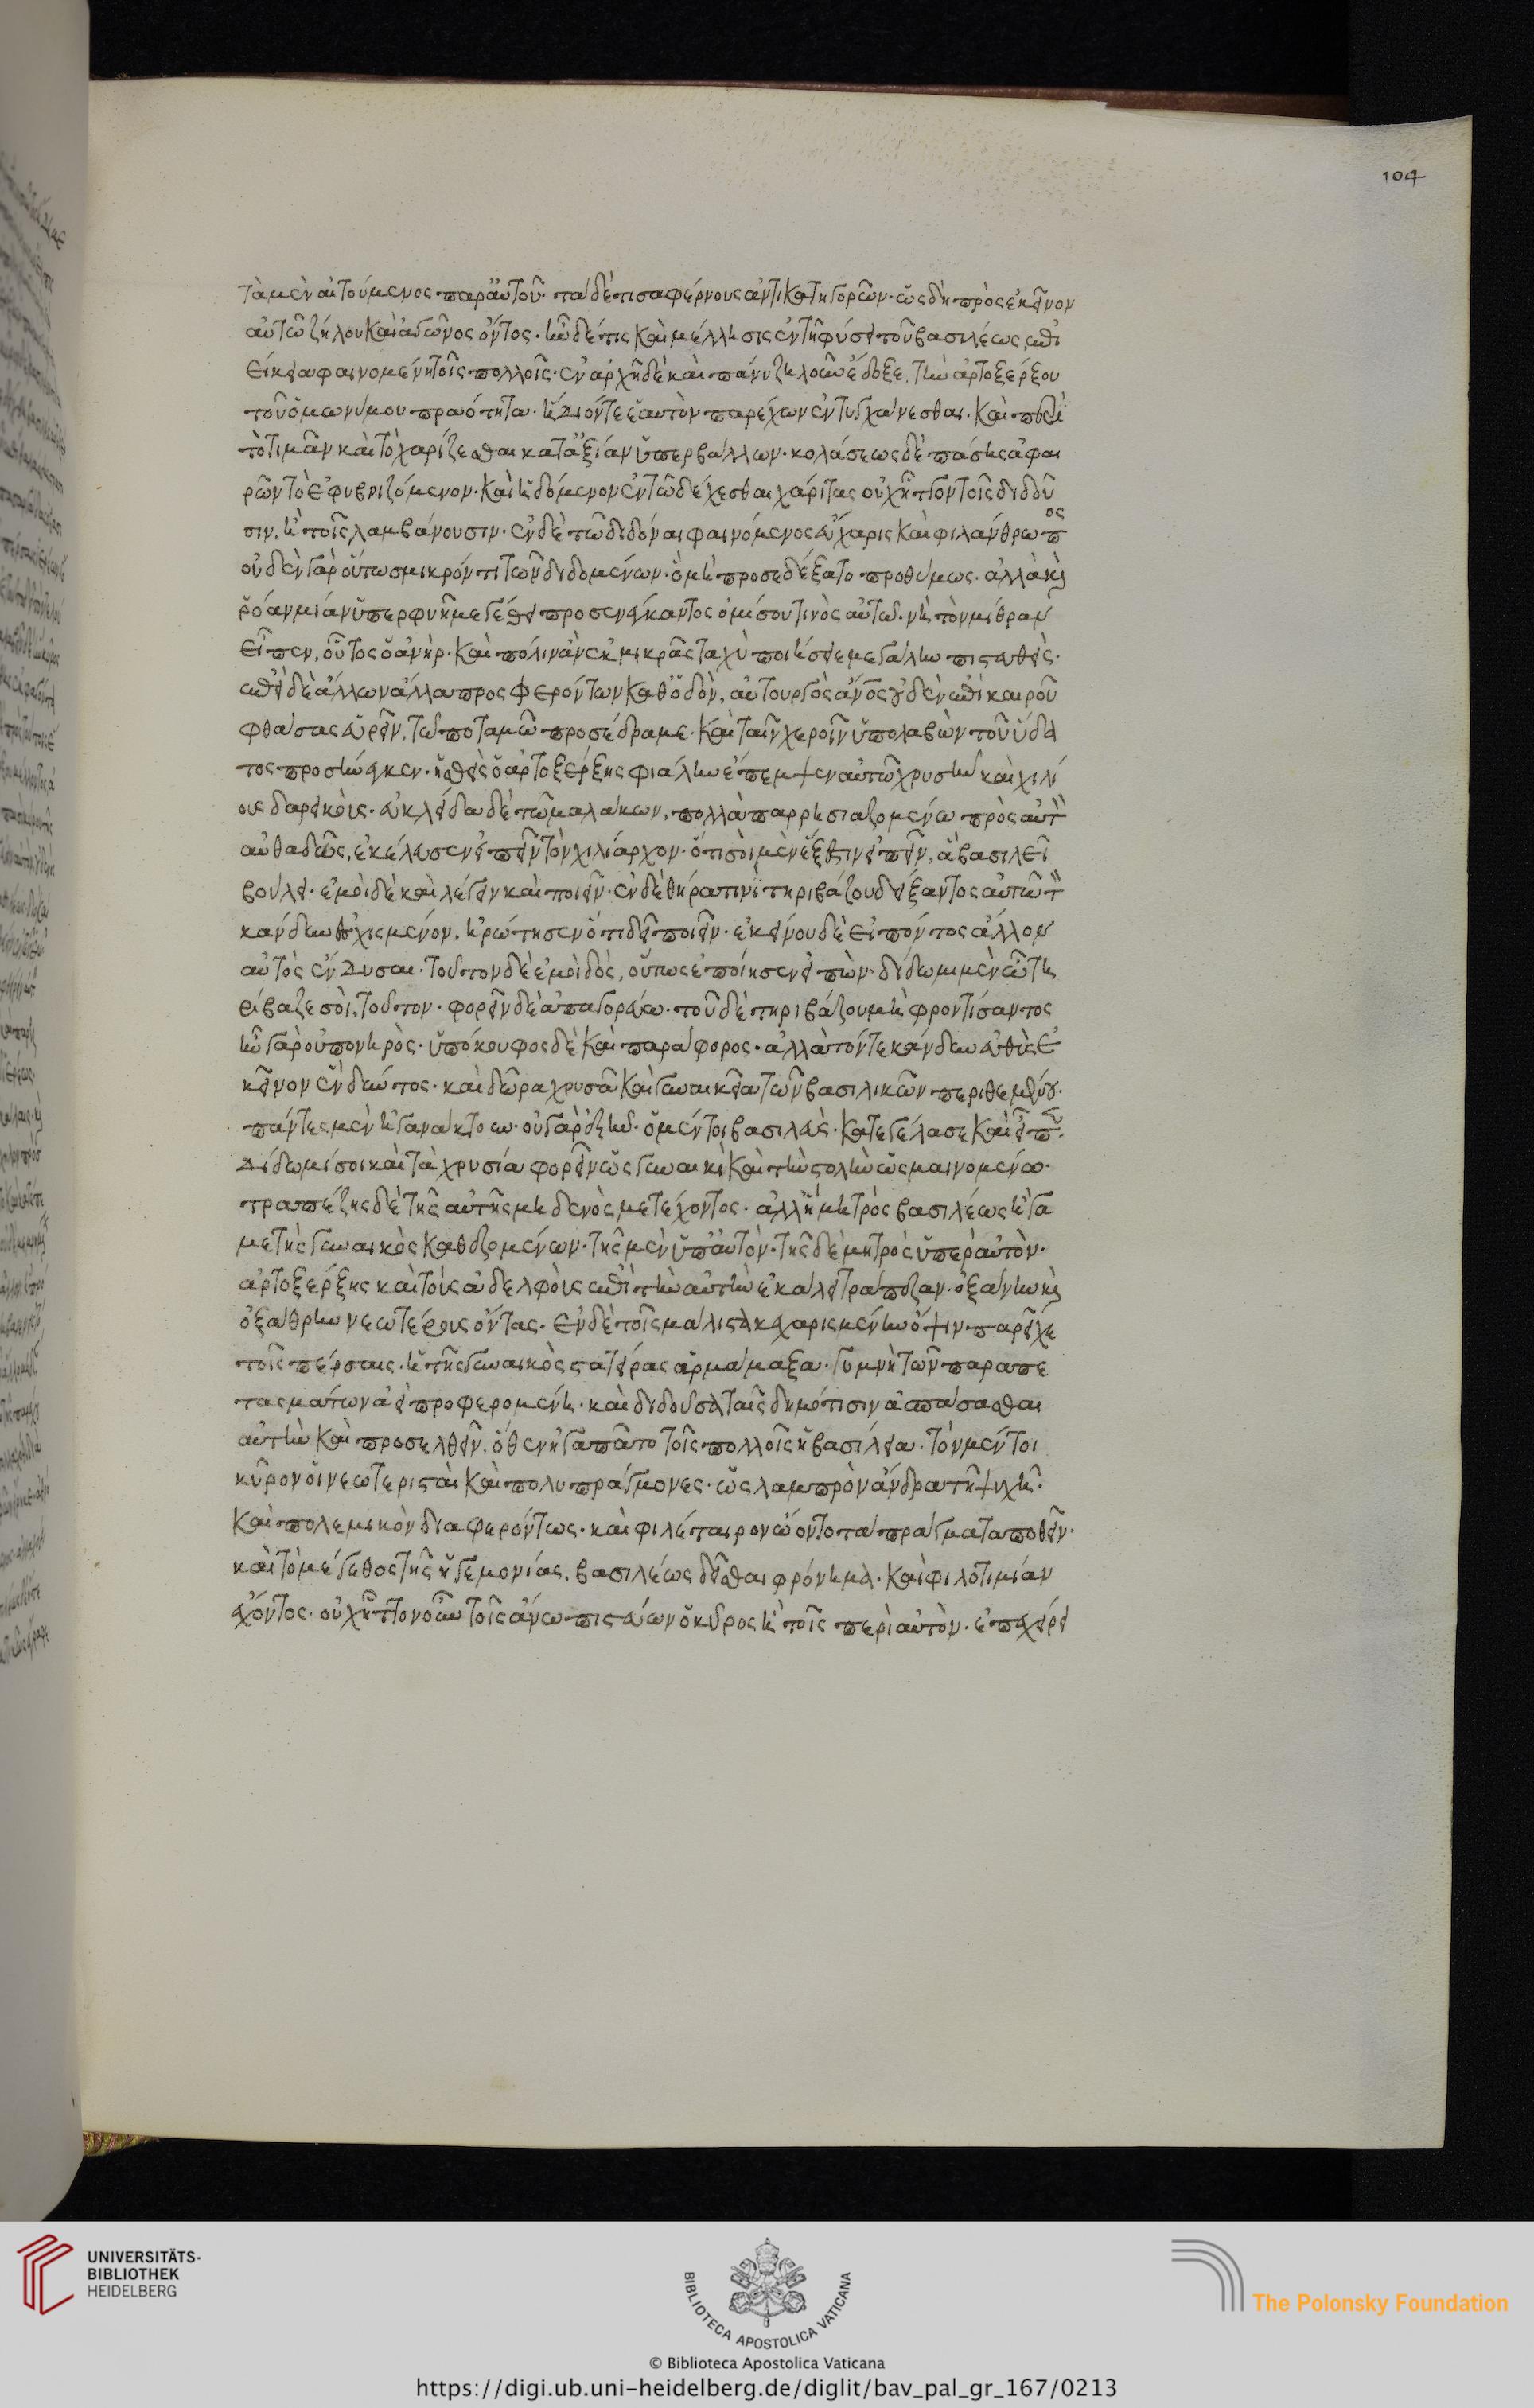 104
τὰ μὲν αἰτούμενος παρ' αὐτοῦ· τὰ δὲ τισαφέρνους ἀντικατηγορῶν· ὡς δὴ πρὸς ἐκεῖνον
αὐτῶ ζήλου καὶ ἀγῶνος ὄντος· ἦν δέ τις καὶ μέλλησις ἐν τῆ φύσει τοῦ βασιλέως, ἐπι
εἰκεία φαινομένη τοῖς πολλοῖς· ἐν ἀρχῆ δὲ καὶ πάνυ ζηλοῦν ἔδοξε, τὴν ἀρτοξέρξου
τοῦ ὁμωνύμου πραότητα· ἡδίοντε ἑαυτὸν παρέχων ἐντυγχάνεσθαι· καὶ περὶ
τὸ τιμᾶν καὶ τὸ χαρίζεσθαι κατ' ἀξίαν ὑπερβάλλων· κολάσεως δὲ πάσης ἀφαι
ρῶν τὸ ἐφυβριζόμενον· καὶ ἡδόμενον ἐν τῶ δέχεσθαι χάριτας οὐχ ἧττον τοῖς διδοῦ
σιν, ἢ τοῖς λαμβάνουσιν· ἐν δὲ τῶ διδόναι φαινόμενος εὔχαρις καὶ φιλάνθρωπος
οὐδὲν γὰρ οὕτως μικρόν τι τῶν διδομένων· ὃ μὴ προσεδέξατο προθύμως· ἀλλὰ καὶ
ῥόαν μίαν ὑπερφυῆ μεγέθει προσενέγκαντος ὁμίσου τινὸς αὐτῶ· νὴ τὸν μίθραν
εἶπεν, οὗτος ὁ ἀνὴρ· καὶ πόλιν ἂν ἐκ μικρᾶς ταχὺ ποιήσειε μεγάλην πιστευθεὶς·
ἐπεὶ δὲ ἄλλων ἄλλα προσφερόντων καθ' ὁδὸν, αὐτουργὸς ἄνος οὐδὲν ἐπὶ καιροῦ
φθάσας εὑρεῖν, τῶ ποταμῶ προσέδραμε· καὶ ταῖν χεροῖν ὑπολαβὼν τοῦ ὕδα
τος προσήνεγκεν· ἡσθεὶς ὁ ἀρτοξέρξης φιάλην ἔπεμψεν αὐτῶ χρυσῆν καὶ χιλί
ους δαρεικούς· εὐκλείδα δὲ τῶ μαλάκων, πολλὰ παρρησιαζομένω πρὸς αὐτὸν
αὐθαδῶς, ἐκέλευσεν εἰπεῖν τὸν χιλίαρχον· ὅτι σοὶ μὲν ἔξεστιν εἰπεῖν, ἃ βασιλεῖ
βούλει· ἐμοὶ δὲ καὶ λέγειν καὶ ποιεῖν· ἐν δὲ θήρα τινὶ τηριβάζου δείξαντος αὐτῶ τὸν
κάνδυν ἐσχισμένον, ἠρώτησεν ὅτι δεῖ ποιεῖν· ἐκείνου δὲ εἰπόντος ἄλλον
αὐτὸς ἔνδυσαι· τοῦτον δὲ ἐμοὶ δὸς, οὕτως ἐποίησεν εἰπὼν· δίδωμι μὲν ὦ τη
ρίβαζε σοὶ, τοῦτον· φορεῖν δὲ ἀπαγορεύω· τοῦ δὲ τηριβάζου μὴ φροντίσαντος
ἦν γὰρ οὐ πονηρὸς· ὑπόκουφος δὲ καὶ παράφορος· ἀλλὰ τόντε κάνδυν εὐθὺς ἐ
κεῖνον ἐνδύντος· καὶ δῶρα χρυσᾶ καὶ γυναικεῖα τῶν βασιλικῶν περιθεμένου·
πάντες μὲν ἠγανάκτουν· οὐ γὰρ ἐξῆν· ὁ μέντοι βασιλεὺς· κατεγέλασε καὶ εἶπεν·
δίδωμί σοι καὶ τὰ χρυσία φορεῖν ὡς γυναικὶ καὶ τὴν στολὴν ὡς μαινομένω·
τραπέζης δὲ τῆς αὐτῆς μηδενὸς μετέχοντος· ἀλλ' ἢ μητρὸς βασιλέως ἢ γα
μετῆς γυναικὸς καθεζομένων· τῆς μὲν ὑπ' αὐτὸν· τῆς δὲ μητρὸς ὑπὲρ αὐτὸν·
ἀρτοξέρξης καὶ τοὺς ἀδελφοὺς ἐπὶ τὴν αὐτὴν ἐκάλει τράπεζαν· ὀξάνην καὶ
ὀξάθρην νεωτέρους ὄντας· ἐν δὲ τοῖς μάλιστα κεχαρισμένην ὄψιν παρεῖχε
τοῖς πέρσαις· ἡ τῆς γυναικὸς στατείρας ἁρμάμαξα· γυμνὴ τῶν παραπε
τασμάτων ἀεὶ προφερομένη· καὶ διδοῦσα ταῖς δημότισιν ἀσπάσασθαι
αὐτὴν καὶ προσελθεῖν, ὅθεν ἠγαπᾶτο τοῖς πολλοῖς ἡ βασίλεια· τὸν μέντοι
κῦρον οἱ νεωτερισταὶ καὶ πολυπράγμονες· ὡς λαμπρὸν ἄνδρα τῆ ψυχῆ·
καὶ πολεμικὸν διαφερόντως· καὶ φιλέταιρον ὤοντο τὰ πράγματα ποθεῖν·
καὶ τὸ μέγεθος τῆς ἡγεμονίας, βασιλέως δεῖσθαι φρόνημα· καὶ φιλοτιμίαν
ἔχοντος· οὐχ ἧττον οὖν τοῖς ἄνω πιστεύων ὁ κῦρος ἢ τοῖς περὶ αὐτὸν· ἐπεχείρει
UNIVERSITÄTS-
BIBLIOTHEK
HEIDELBERG
BIBLIOTECA APOSTOLICA VATICANA
The Polonsky Foundation
© Biblioteca Apostolica Vaticana
https://digi.ub.uni-heidelberg.de/diglit/bav_pal_gr_167/0213